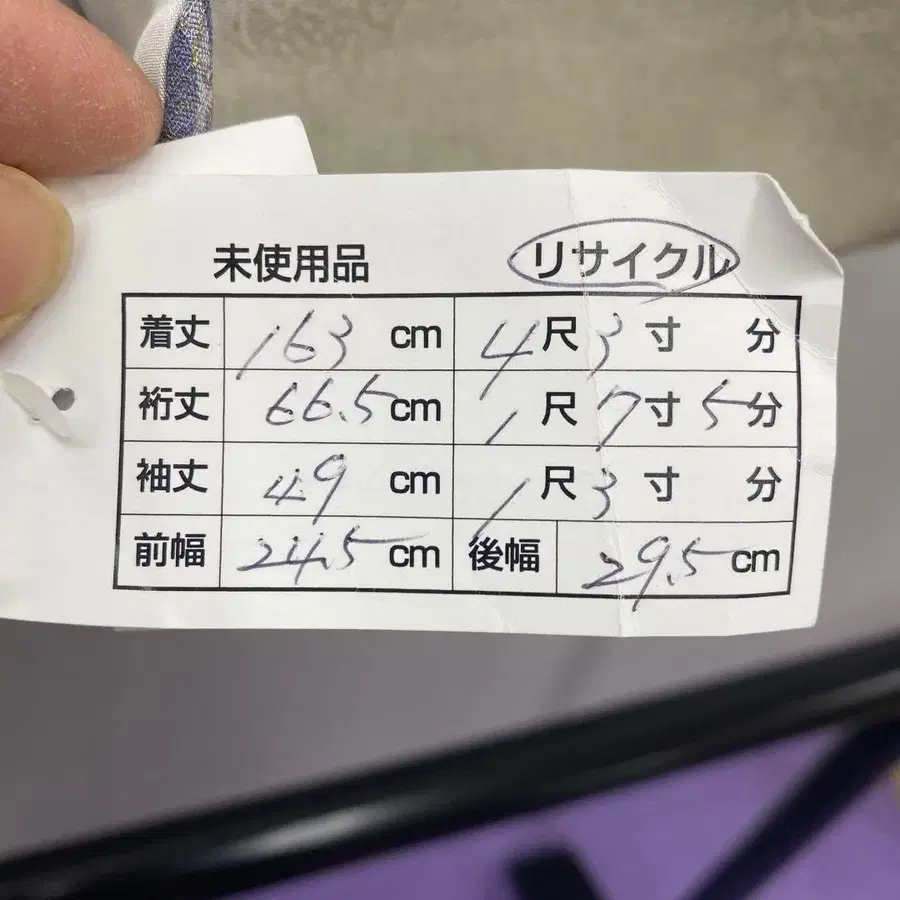 未使用品 リサイクル
着丈 163 cm 4尺3寸 分
裄丈 66.5cm 1尺7寸5分
袖丈 49 cm 1尺3寸 分
前幅 24.5 cm 後幅 29.5 cm